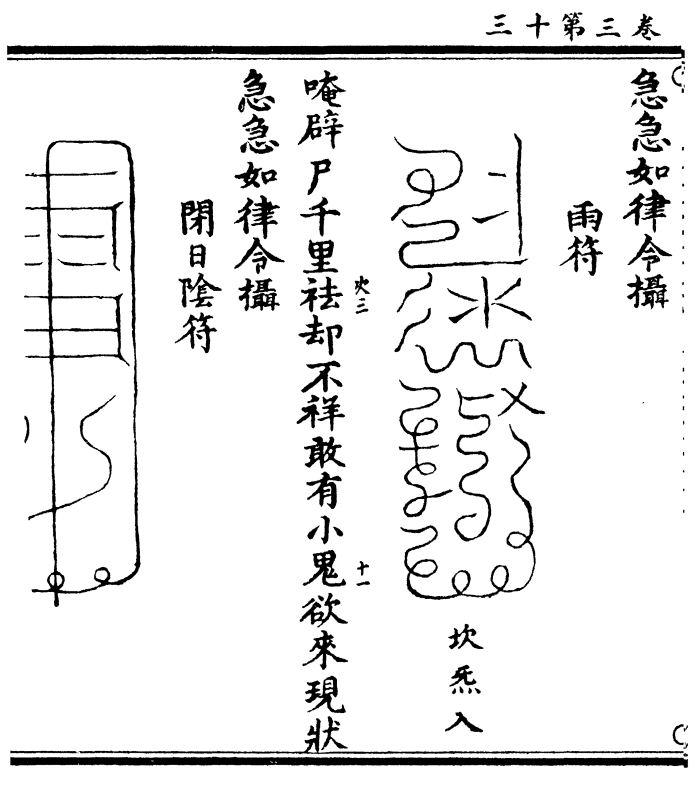 卷三第十三
急急如律令攝
雨符
坎炁入
唵辟尸千里祛却不祥敢有小鬼欲來現狀
火三
十一
急急如律令攝
閉日陰符